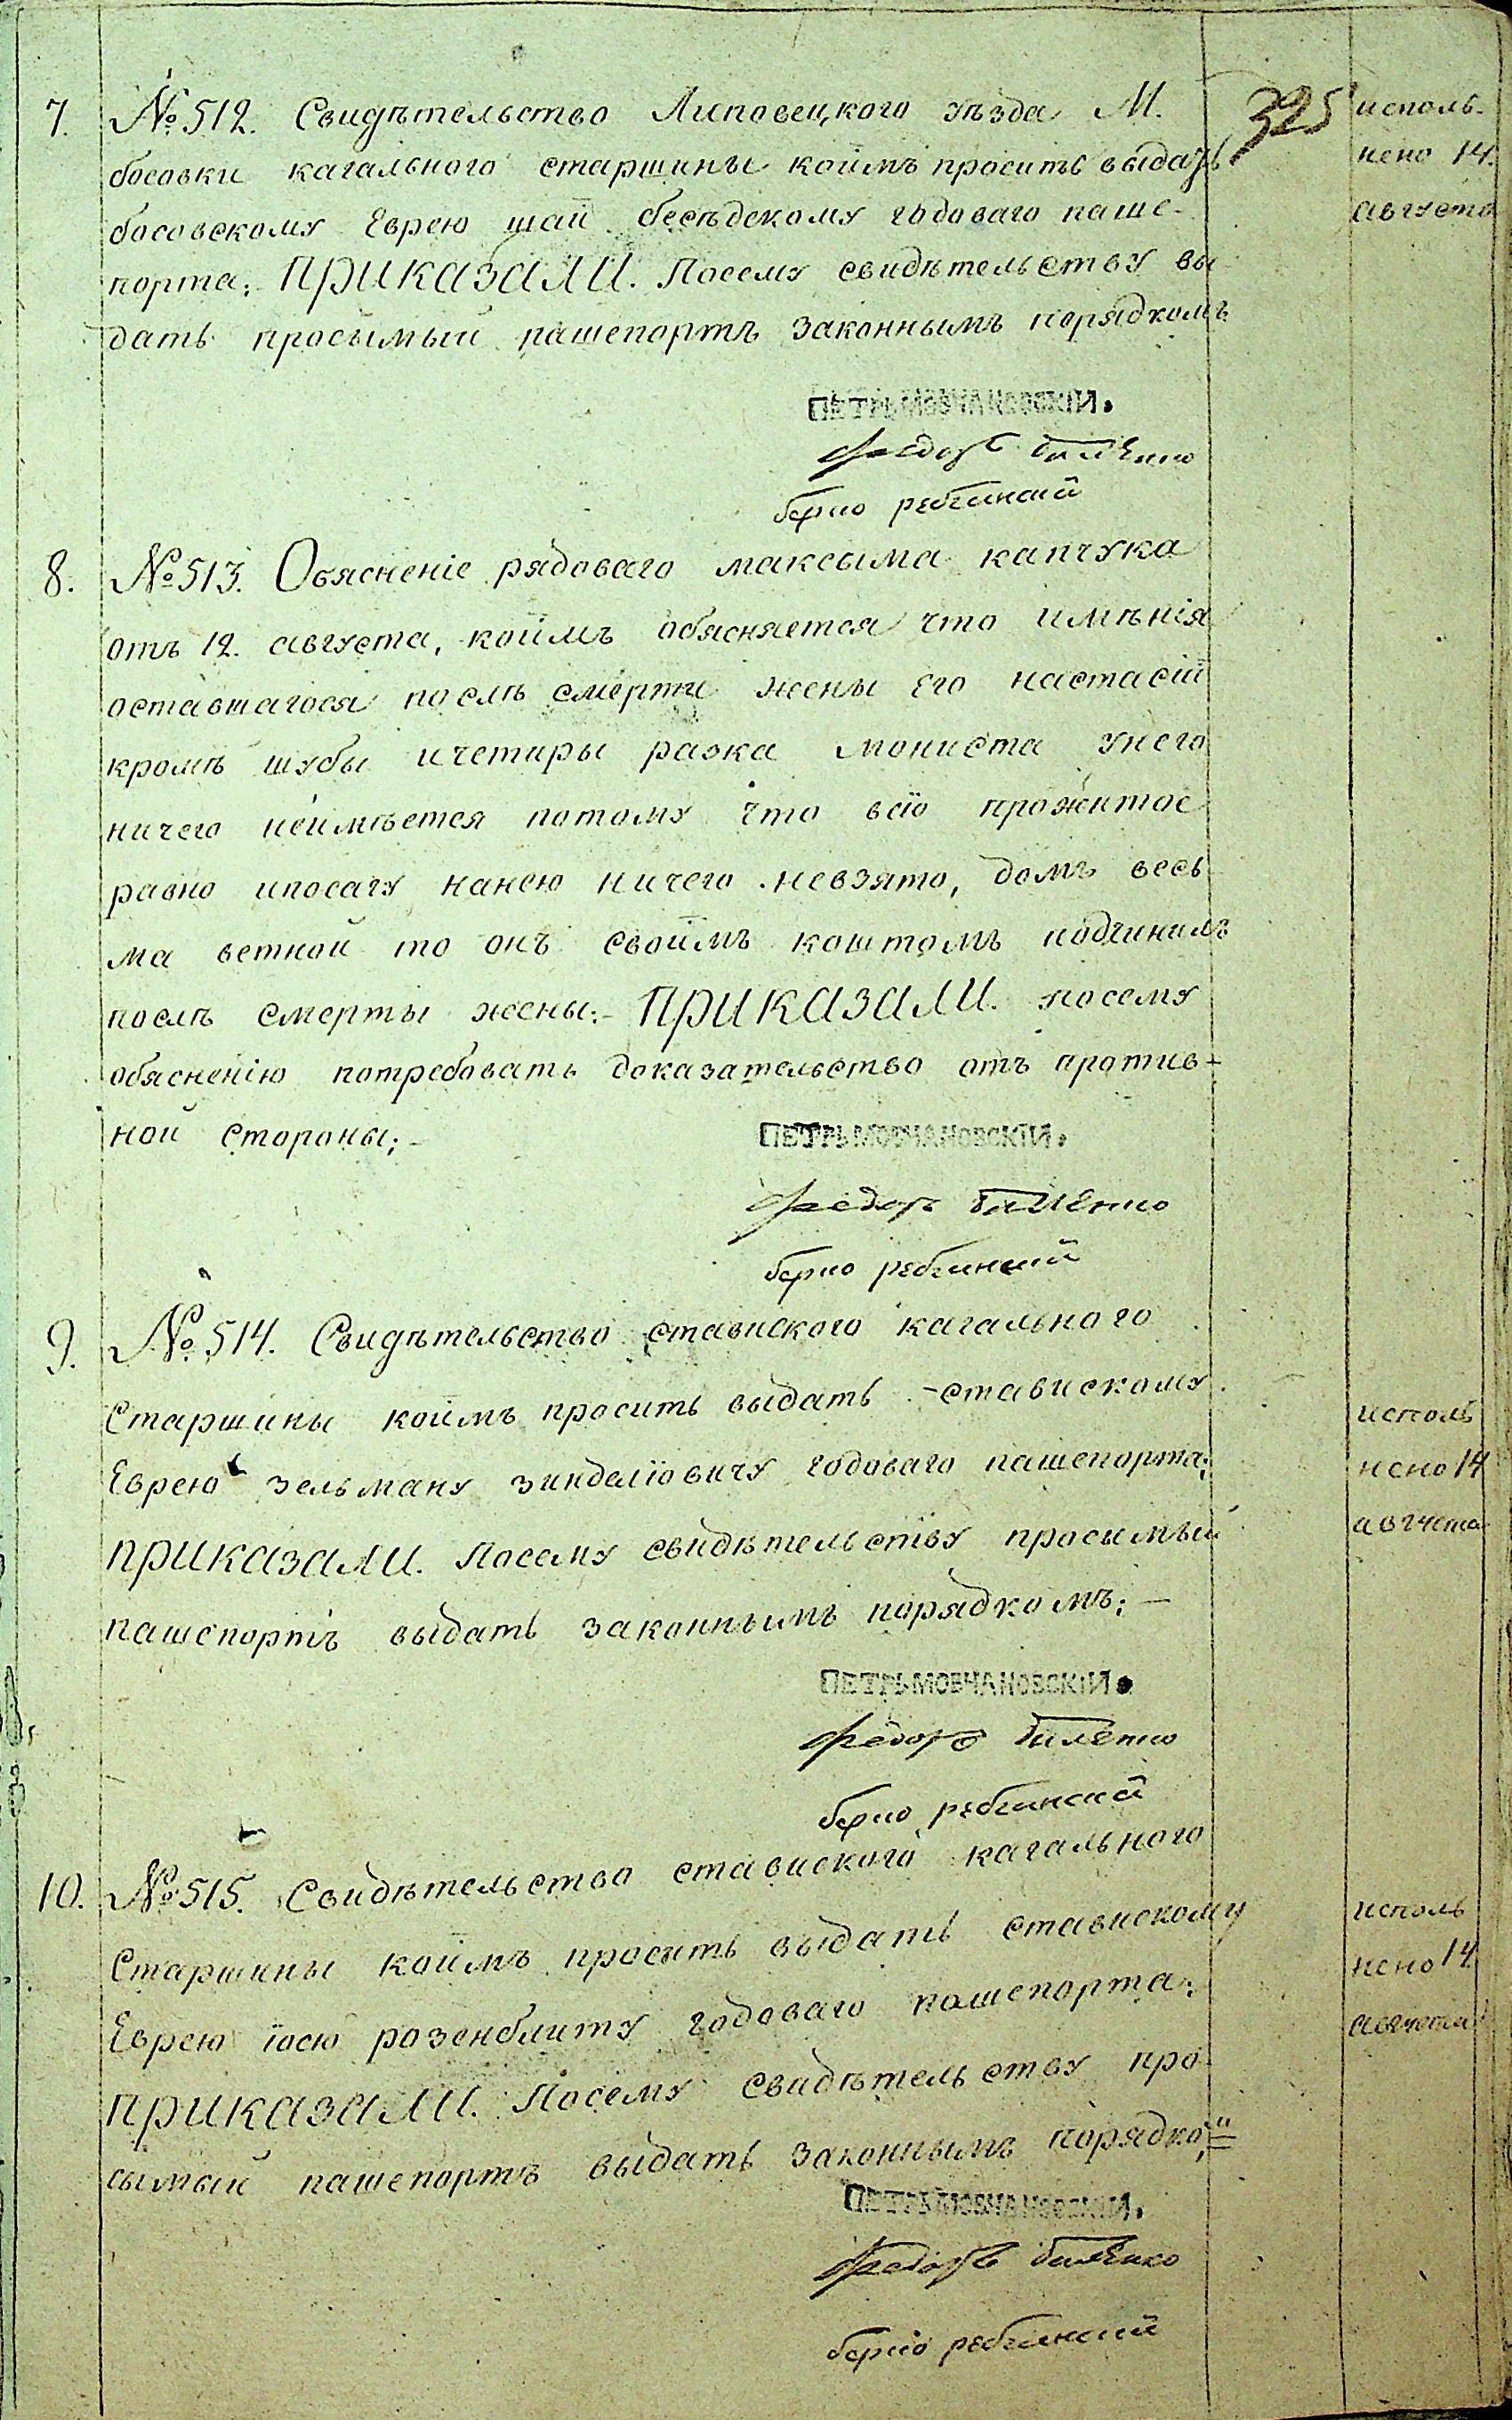 325
7. №512. Свидѣтельство Липовецкого уѣзда М.
босовки кагального старшины коимъ просить выдать
босовскому Еврею шаи бесѣдскому годоваго паше-
порта; ПРИКАЗАЛИ. Посему свидѣтельству вы
дать просымый пашепортъ законнымъ порядкомъ
исполь-
нено 14.
августа
ПЕТРЬ МОВЧАНОВСКІЙ.
Федоръ
берко
8. №513. Обясненіе рядоваго максыма капчука
отъ 12. августа, коимъ обясняется что имѣнія
оставшагося послѣ смерти жены его настасіи
кромѣ шубы ичетиры разка мониста унего
ничего неимѣется потому что всіо прожитое
равно ипосагу нанею ничего невзято, домъ весь
ма ветхой то онъ своимъ коштомъ подчинилъ
послѣ смерты жены;- ПРИКАЗАЛИ. посему
обясненію потребовать доказательство отъ против-
ной стороны;-
ПЕТРЬ МОВЧАНОВСКІЙ.
Федоръ
берко
9. №514. Свидѣтельство ставиского кагального
старшины коимъ просить выдать -ставискому
Еврею зельману зинделіовичу годоваго пашепорта;
ПРИКАЗАЛИ. Посему свидѣтельству просымый
пашепортъ выдать законнымъ порядкомъ;-
исполь
нено 14
августа
ПЕТРЬ МОВЧАНОВСКІЙ.
Федоръ
берко
10. №515. Свидѣтельство ставиского кагального
старшины коимъ просить выдать ставискому
Еврею іосю розенблиту годоваго пашепорта;
ПРИКАЗАЛИ. Посему свидѣтельству про-
сымый пашепортъ выдать законнымъ порядко;
исполь
нено 14
августа
ПЕТРЬ МОВЧАНОВСКІЙ.
Федоръ
берко